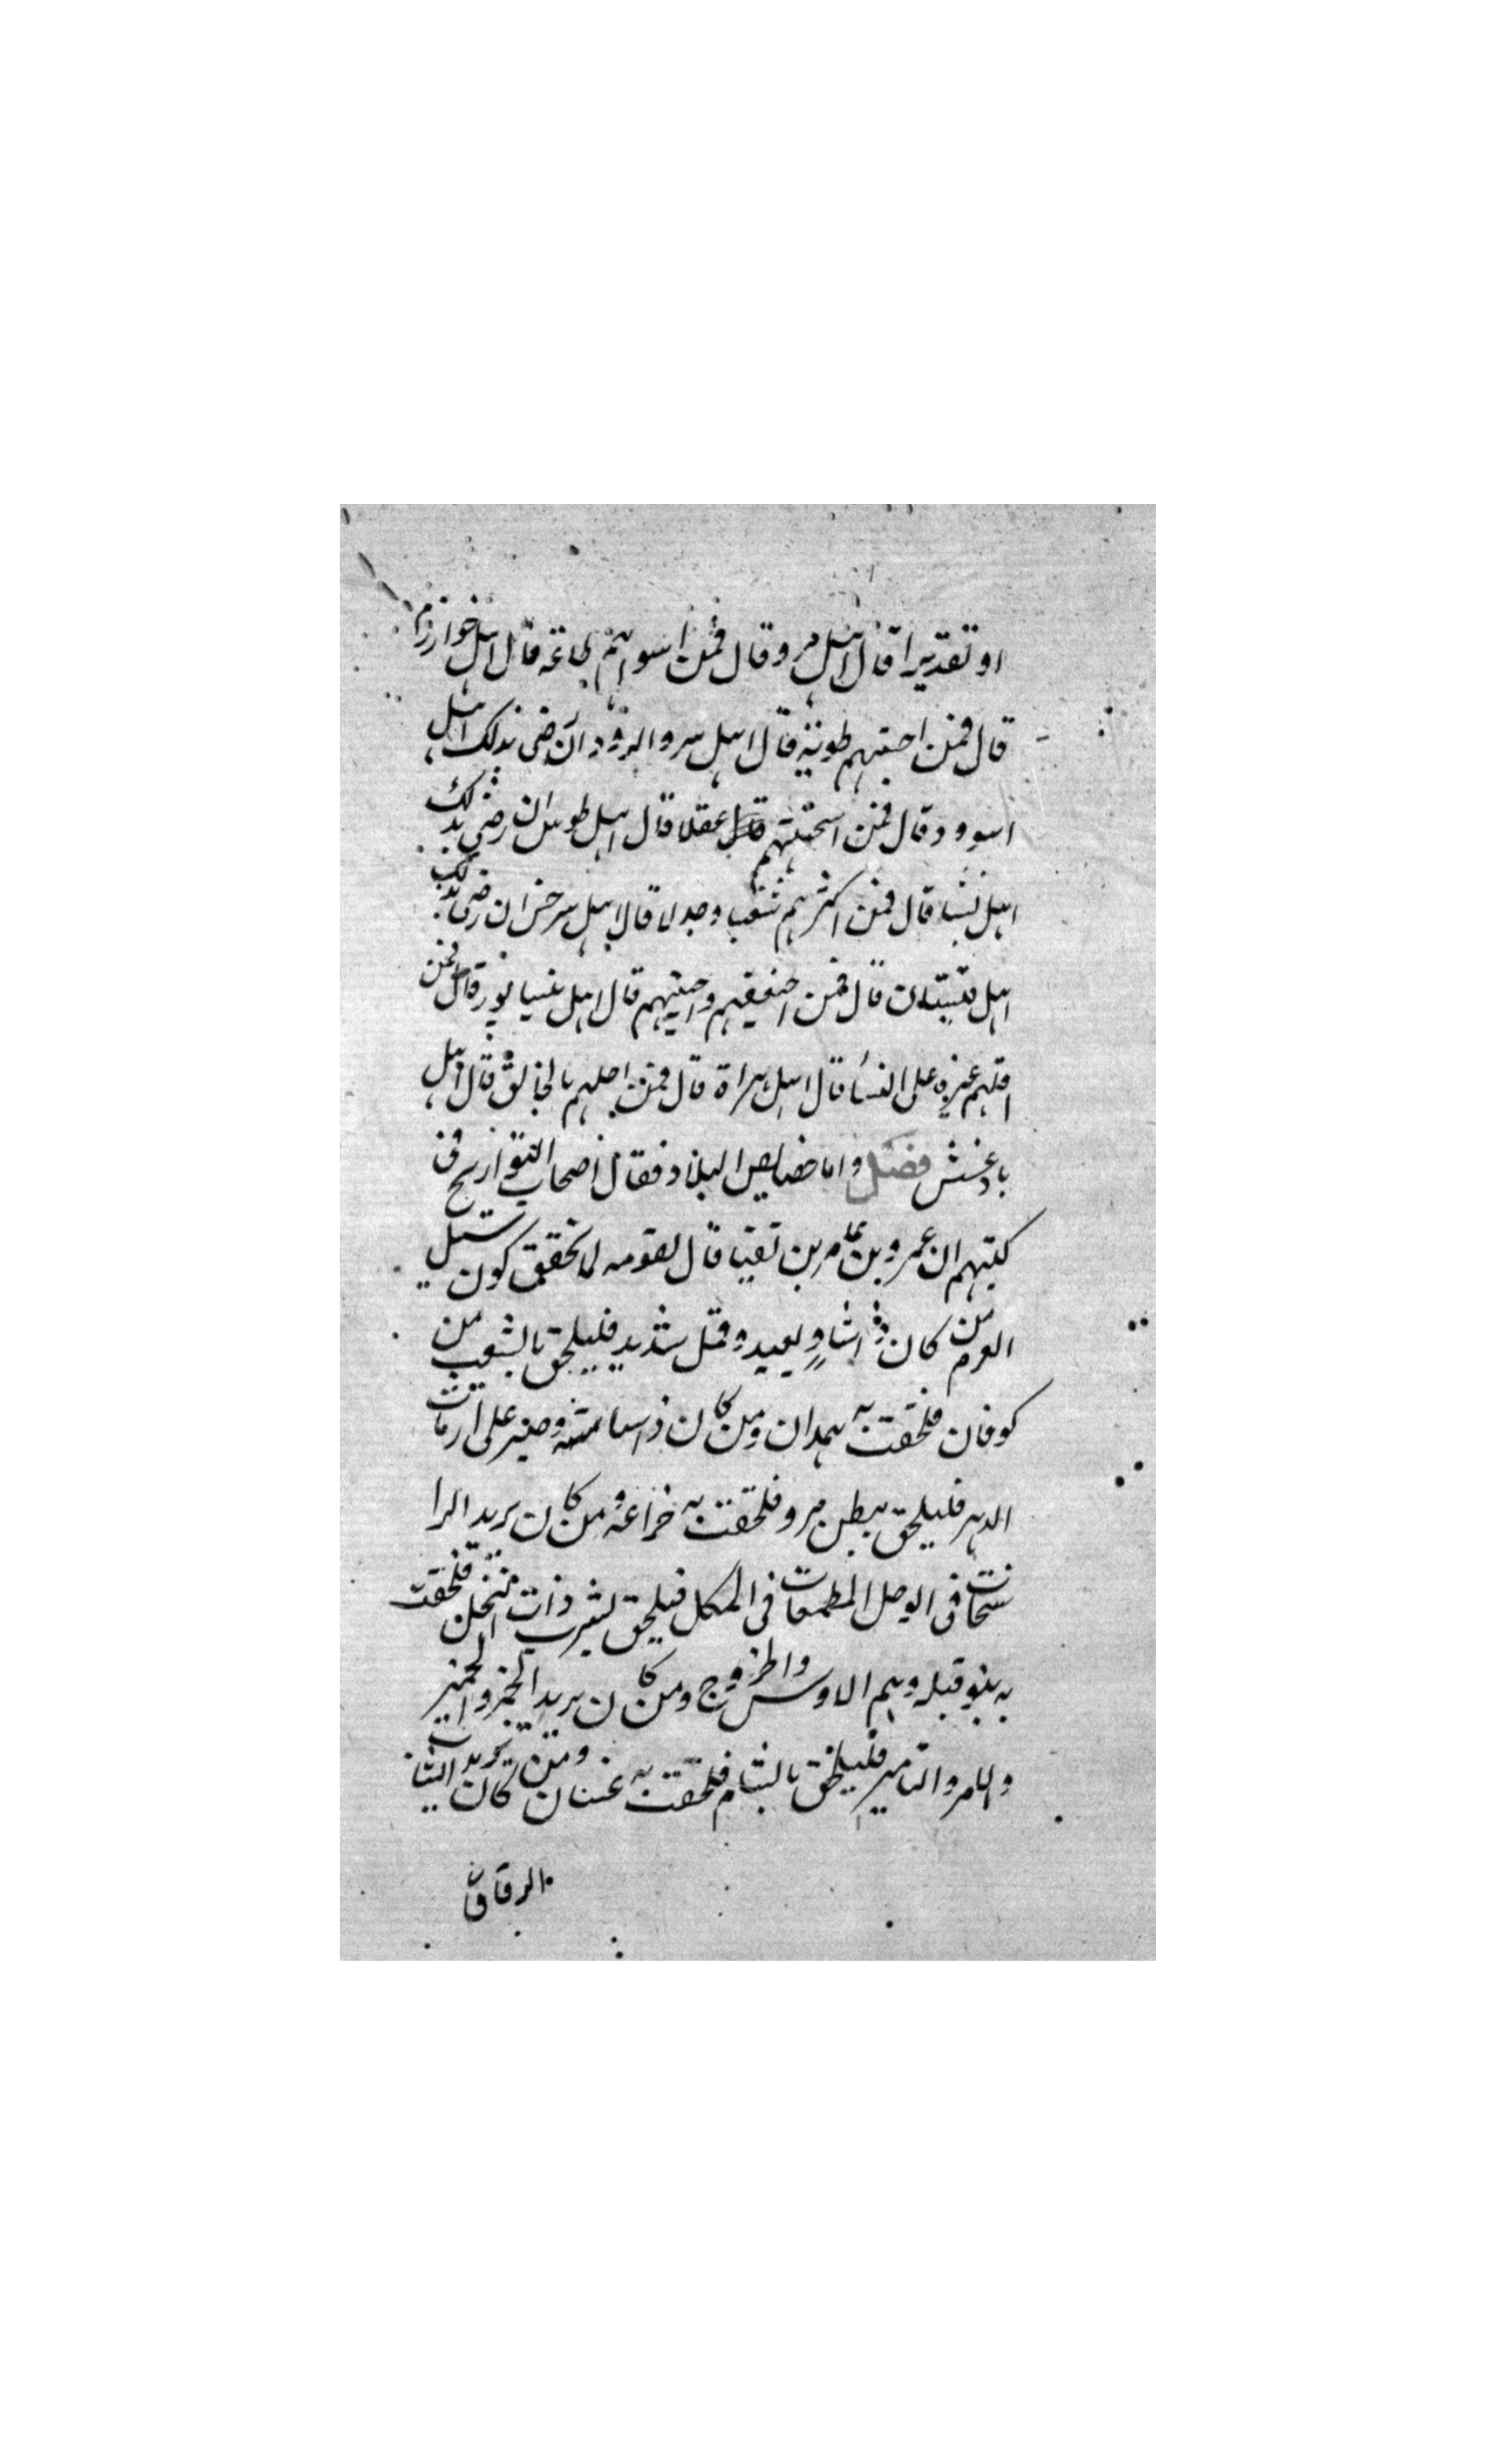 او تقديرا قال اهل مرو قال فمن اسواهم طاعة قال اهل خوارزم
قال فمن احبثهم طوية قال اهل مرو الروذ ان رضى بذلك اهل
اسورد قال فمن اسخفهم عقلا قال اهل طوس ان رضى بذلك
اهل نسا قال فمن اكثرهم شغبا وجدلا قال اهل سرخس ان رضى بذلك
اهل قال فمن اضعفهم قال اهل نيسابور قال فمن
اقلهم غيرة على النساء قال اهل هراة قال فمن اجهلهم بالخالق قال اهل
بادغيش فصل واما خصايص البلاد فقال اصحاب التواريخ فى
كتبهم ان عمرو بن عامر بن قال لقومه لما تحقق كون سيل
العرم من كان ذا شاو بعيد وجمل شديد فليلحق بالشعب من
كوفان فلحقت به همدان ومن كان ذا سياسة وصبر على ازمات
الدهر فليلحق ببطن مرو فلحقت به خزاعة ومن كان يريد الرا
سخات فى الوحل المطعمات فى المحل فليلحق بيثرب ذات النخل فلحقت
به بنو قيله وهم الاوس والخزرج ومن كان يريد الخمر والخمير
والامر والتامير فليلحق بالشام فلحقت به غسان ومن كان يريد الثياب
الرقاق